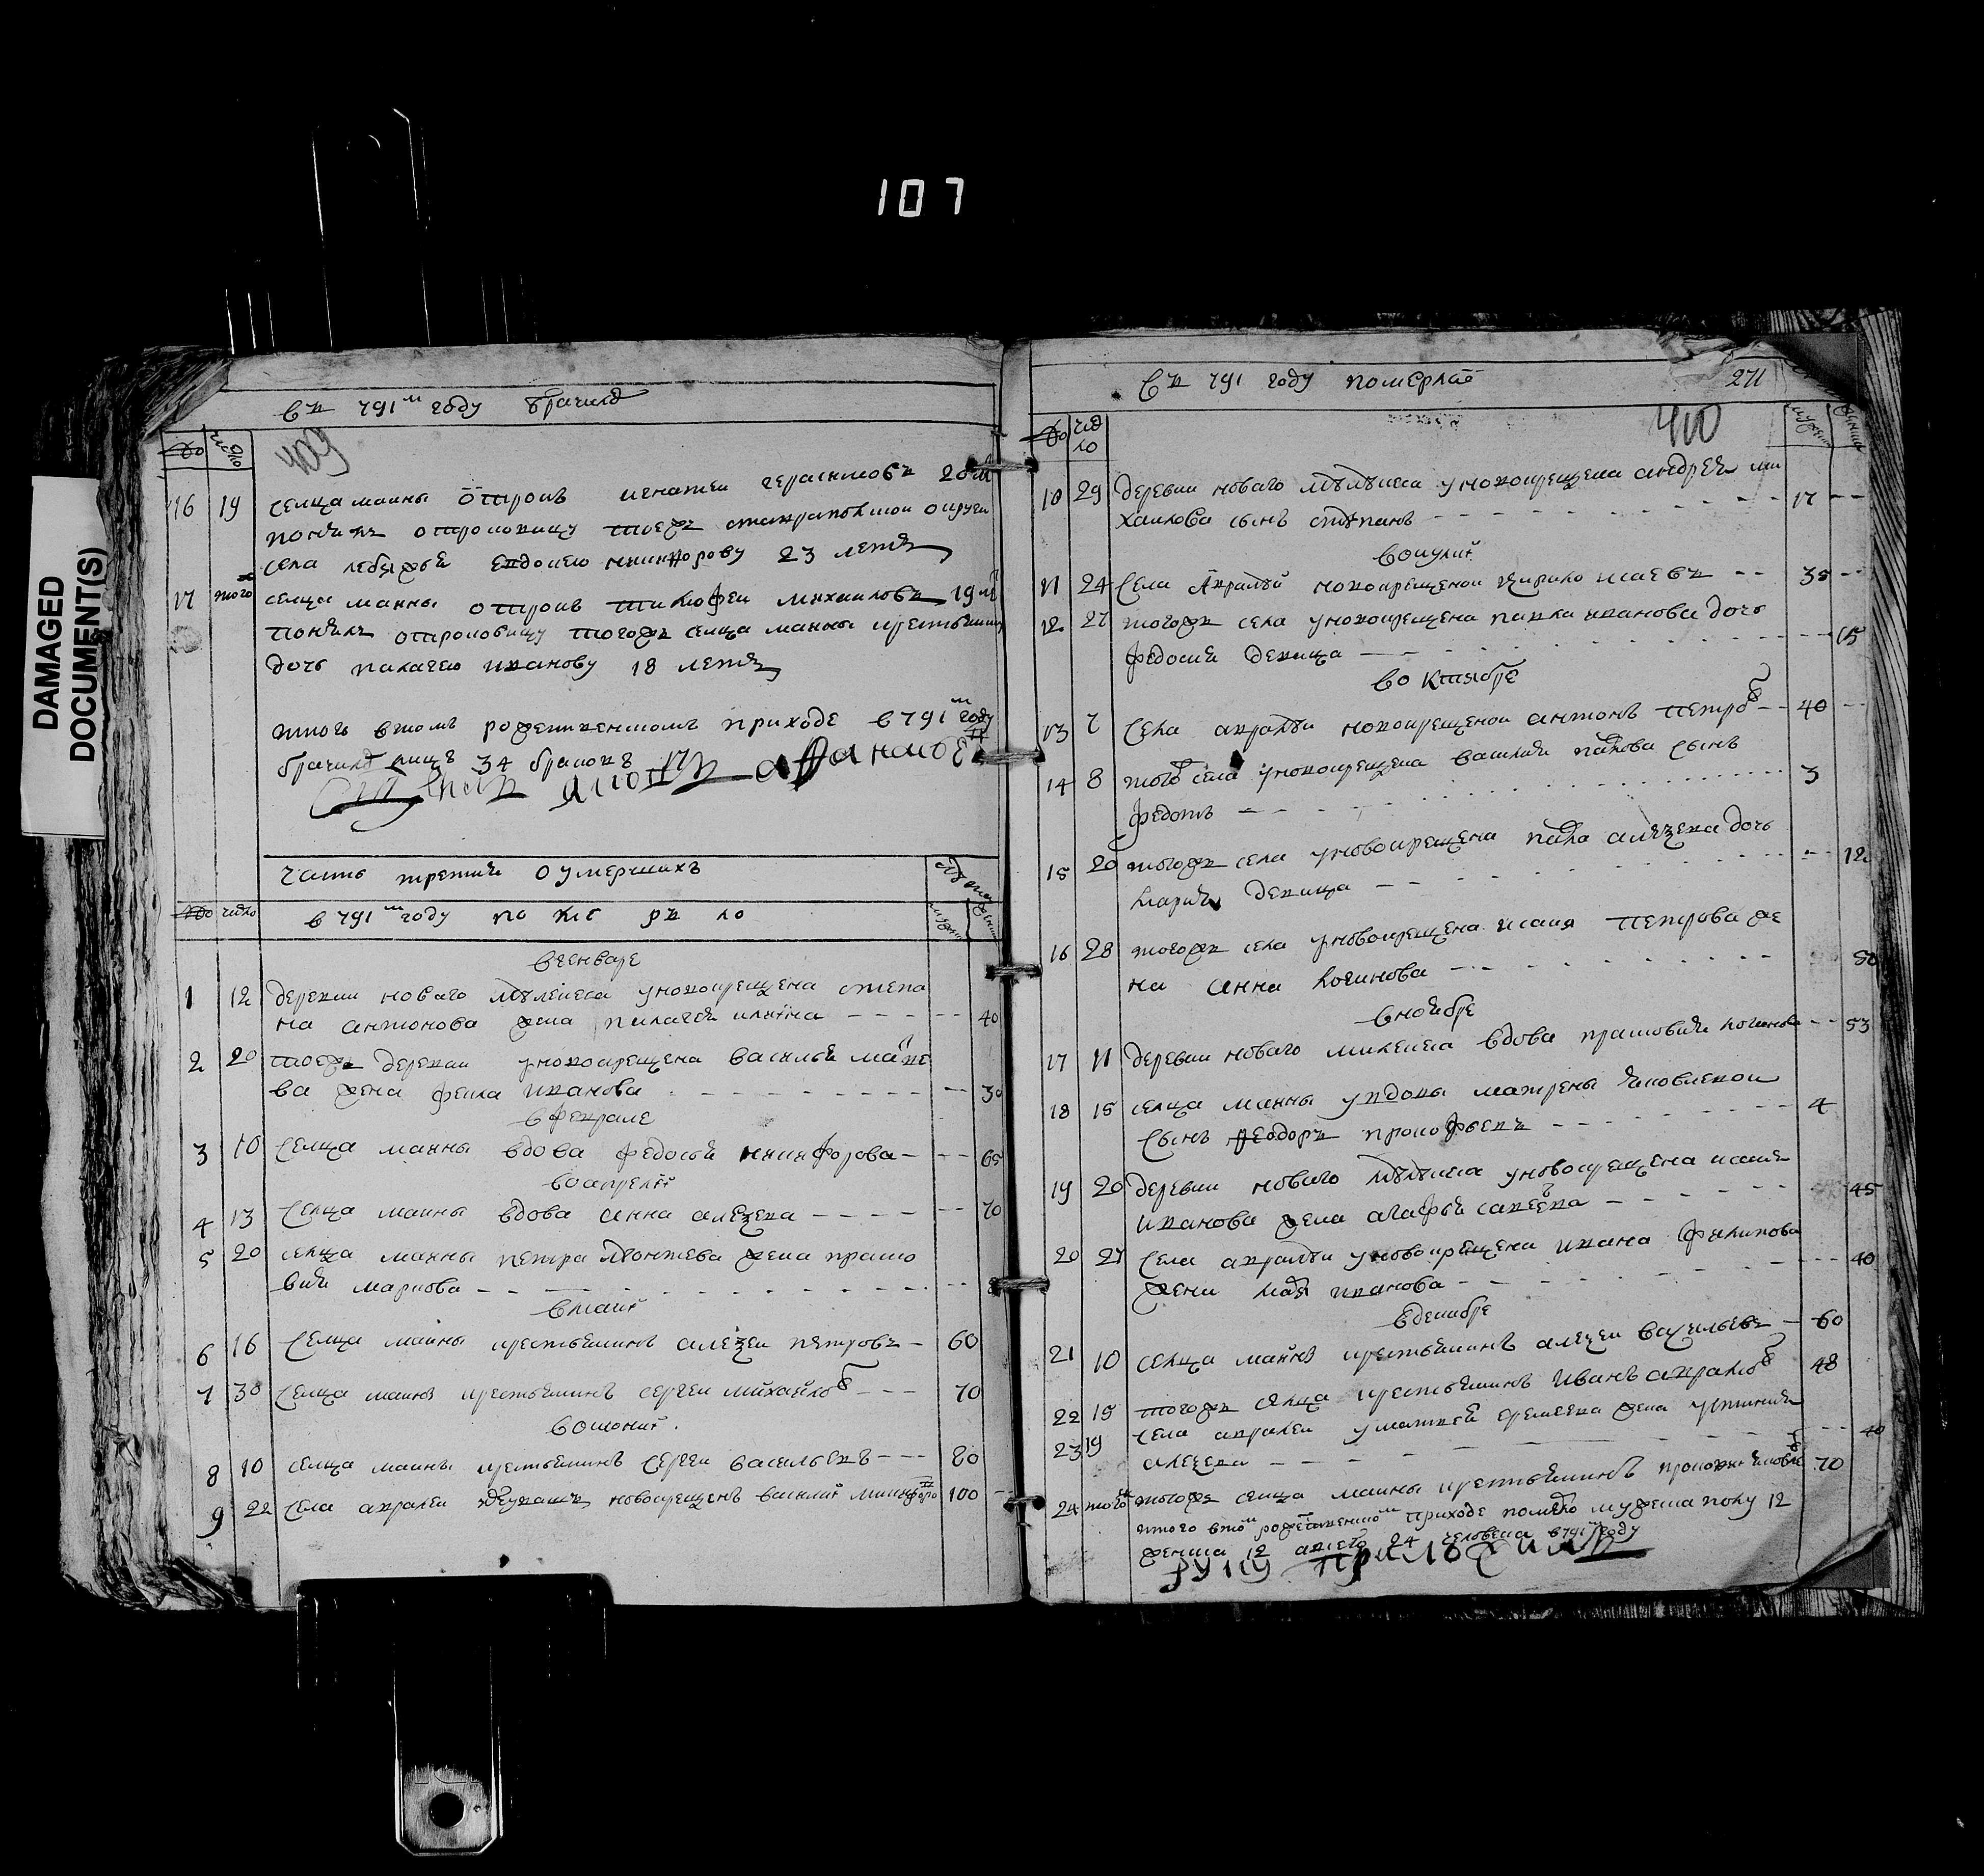 107
DAMAGED
DOCUMENT(S)
въ 791м году брачилс
409
16 19 селца маины отрокъ игнатеи герасимовъ 20 ле
понялъ отроковицу тоежъ ставрополской округи
села лебяжья евдокею никифорову 23 летъ
17 того ж селца маины отрокъ тимофеи михаиловъ 19 ле
понялъ отроковицу тогожъ селца маины крестьянину
дочь палагею иванову 18 летъ
итого втомъ рожественскомъ приходе в 791м году
брачилс лицъ 34 браковъ 17
афанасье
часть третия о умершихъ
число в 791м году по мѣ ръ ло
вгенваре
1 12 деревни новаго мѣлекеса у новокрещена степа
на антонова жена пилагея илина 40
2 20 тоежъ деревни у новокрещена василья мавѣе
ва жена фекла иванова 30
вфеврале
3 10 селца маины вдова федосья никифорова 65
воапреле
4 13 селца маины вдова анна алеѯева 70
5 20 селца маины петра леонтева жена праско
вия маркова
вмаие
6 16 селца маины крестьянинъ алеѯеи петровъ 60
7 30 селца маины крестьянинъ сергеи михаилов 70
воиюне
8 10 селца маины крестьянинъ сергеи васильевъ 80
9 22 села авралеи новокрещенъ василие никифоро 100
въ 791 году померло 271
число
410
10 29 деревни новаго мѣлекеса у новокрещена андрея ми
хаилова сынъ степанъ 17
воиулие
11 24 села Авралей новокрещеной кирило исаевъ 35
12 27 тогожъ села у новокрещена павла иванова дочь
федосия девица 15
во Ктябре
13 7 села авралеи новокрещеной антонъ петров 40
14 8 тогож села у новокрещена василия павлова сынъ
федотъ 3
15 20 тогожъ села у новокрещена павла алеѯева дочь
мария девица 12
16 28 тогожъ села у новокрещена исаия петрова же
на анна логинова 50
вноябре
17 11 деревни новаго милекеса вдова прасковия логинова 53
18 15 селца маины у вдовы матрены яковлевои
сынъ феодоръ прокофьевъ 4
19 20 деревни новаго мѣлекеса у новокрещена исаия
иванова жена агафья савеева 45
20 27 села авралеи у новокрещена ивана филипова
жена иванова 40
вдекабре
21 10 селца маины крестьянинъ алеѯеи васильевъ 60
22 15 тогожъ селца крестьянинъ Иванъ авралов 48
23 19 села авралеи у матвея еремеева жена устиния
алеѯева 40
24 того ж тогожъ селца маины крестьянинъ прокофи яковле 70
итого втом рожественском приходе померло мужеска полу 12
женска 12 авсего 24 человека в 791м году
руку приложилъ